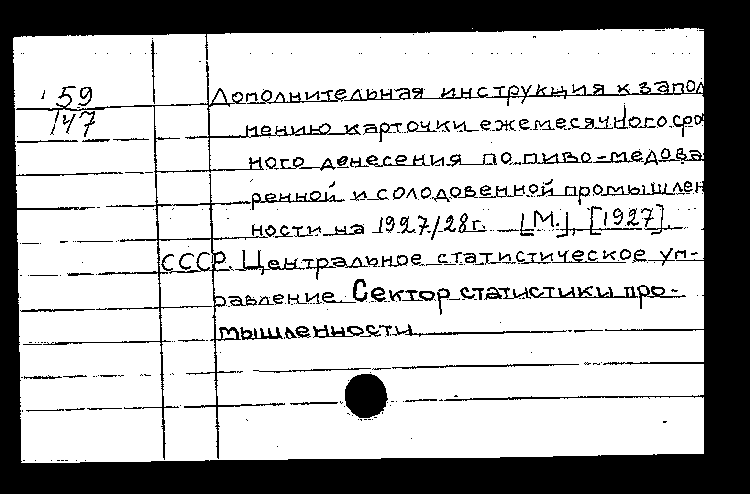 59
147
Дополнительная инструкция к запол
нению карточки ежемесячного сро
ного донесения по пиво-медова
ренной и солодовенной промышлен
ности на 1927/28г. [М.], [1927].
СССР. Центральное статистическое уп-
равление. Сектор статистики про-
мышленности.